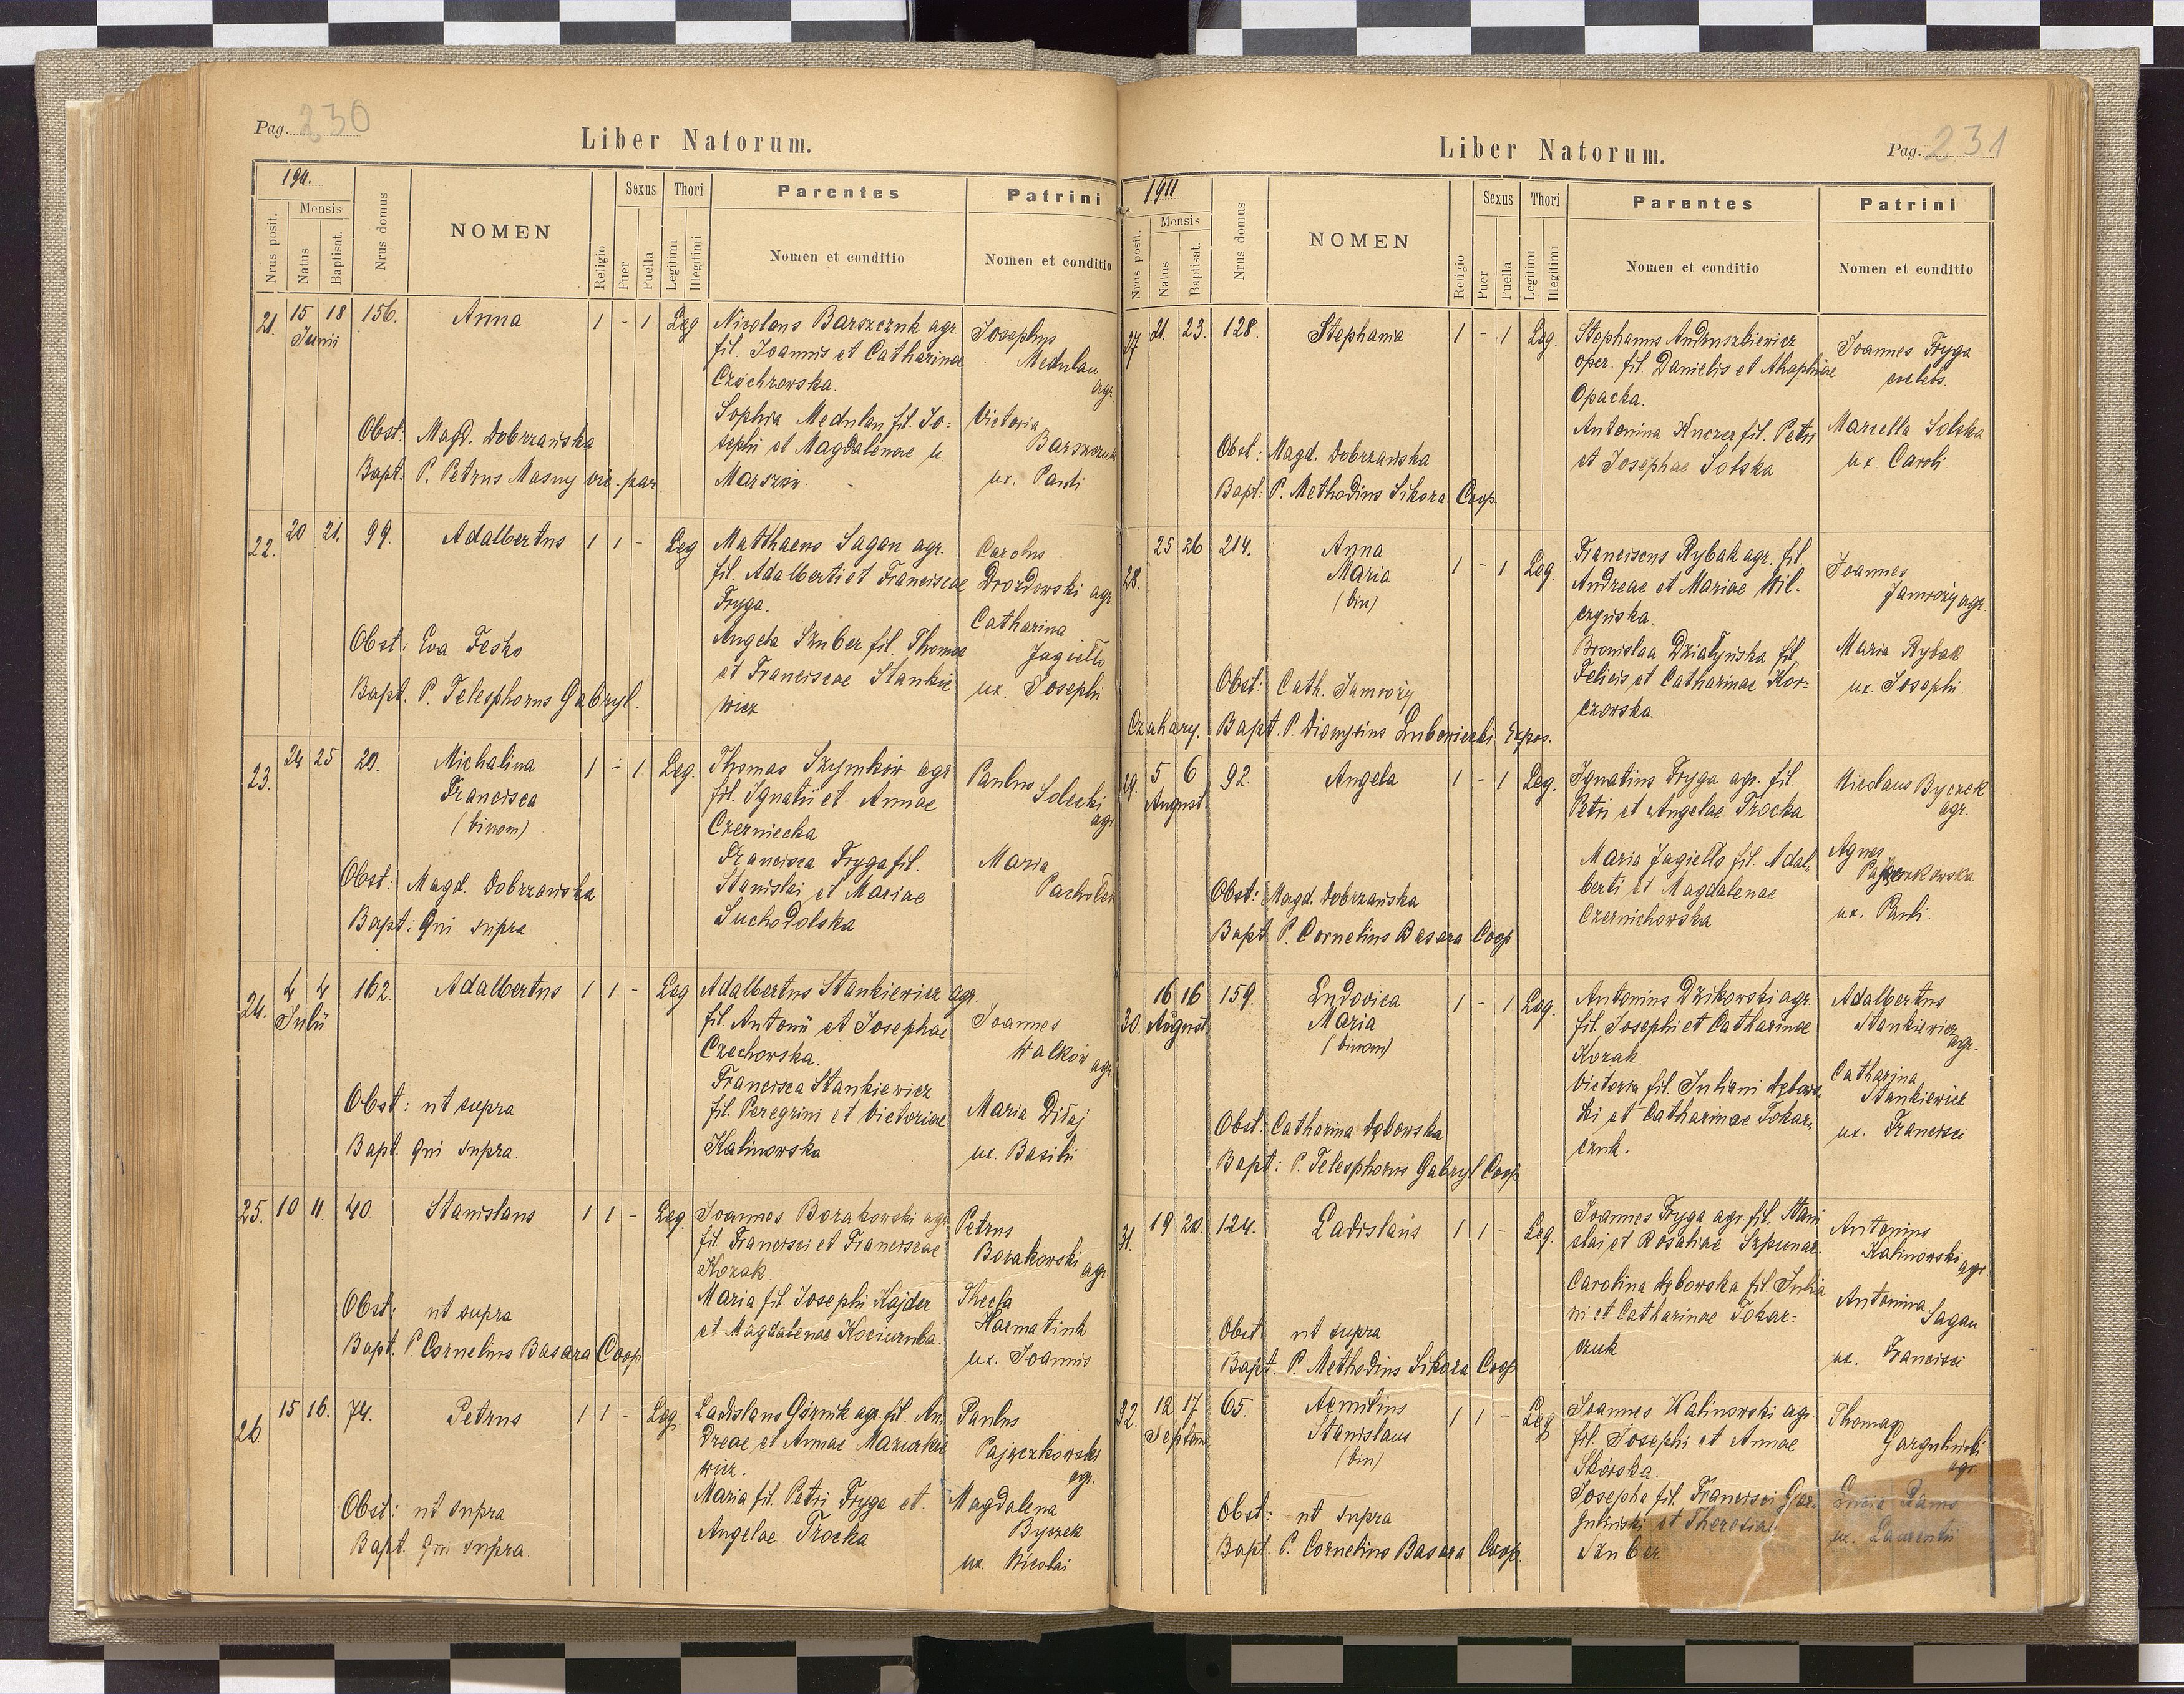 Pag. 230
Liber Natorum.
1911.
Nrus posit.
Mensis
Natus
Baptisat.
Nrus domus
NOMEN
Religio
Sexus
Puer
Puella
Thori
Legitimi
Illegitimi
Parentes
Nomen et conditio
Patrini
Nomen et conditio
21. 15 18 156. Anna 1 - 1 Leg Nicolaus Barszczuk agr. Josephus
Junii fil. Joannis et Catharinae Medulan
Czochrowska. agr.
Sophia Medulan fil. Jo- Victoria
Obst: Magd. Dobrzańska sephi et Magdalenae u. Barszczuk
Bapt. P. Petrus Masny vic. par. Marszów. ux. Pauli
22. 20 21. 99. Adalbertus 1 1 - Leg Matthaeus Sagan agr. Carolus
fil. Adalberti et Franciscae Drozdowski agr.
Fryga. Catharina
Obst: Eva Fesko Angela Szuber fil. Thomae Jagiełło
et Franciscae Stankie ux. Josephi
Bapt. P. Telesphorus Gabryl. wicz
23. 24 25 20. Michalina 1 - 1 Leg. Thomas Szymków agr Paulus
Francisca fil. Ignatii et Annae Solecki
(binom) Czerniecka agr
Francisca Fryga fil. Maria
Obst: Magd. Dobrzańska Stanislai et Mariae Pacholek
Bapt: Qui supra Suchodolska
24. 4 4 162. Adalbertus 1 1 - Leg Adalbertus Stankiewicz agr.
Julii fil. Antonii et Josephae Joannes
Czechowska. Walków agr
Francisca Stankiewicz
Obst: ut supra fil. Peregrini et Victoriae Maria Diłaj
Bapt. Qui supra. Kalinowska ux. Basilii
25. 10 11. 40. Stanislaus 1 1 - Leg. Joannes Borakowski agr Petrus
fil. Francisci et Franciscae Borakowski
Kozak. agr.
Obst: ut supra Maria fil. Josephi Kajder Thecla
et Magdalenae Kociumba. Harmatiuk
Bapt. P. Cornelius Basara Coop ux. Joannis
26. 15 16. 74. Petrus 1 1 - Leg. Ladislaus Górnik agr. fil. An- Paulus
dreae et Annae Mazurkie Pajączkowski
wicz. agr.
Obst: ut supra Maria fil. Petri Fryga et Magdalena
Bapt. Qui supra. Angelae Trocka Byczek
ux. Nicolai
Liber Natorum.
Pag. 231
1911
Nrus posit.
Mensis
Natus
Baptisat.
Nrus domus
NOMEN
Religio
Sexus
Puer
Puella
Thori
Legitimi
Illegitimi
Parentes
Nomen et conditio
Patrini
Nomen et conditio
27 21. 23. 128. Stephania 1 - 1 Leg. Stephanus Andruszkiewicz Joannes Fryga
oper. fil. Danielis et Ahaphiae coelebs.
Opacka.
Obst: Magd. Dobrzańska Antonina Kuczer fil. Petri Marcella Solska
Bapt: P. Methodius Sikora Coop. et Josephae Solska ux. Caroli
28. 25 26 214. Anna 1 - 1 Leg. Franciscus Rybak agr. fil. Joannes
Maria Andreae et Mariae Wil- Jamroży agr.
(bin) czyńska.
Bronislaa Działyńska fil. Maria Rybak
Obst: Cath. Jamroży Felicis et Catharinae Kor- ux. Josephi.
Czahary. Bapt. P. Dionysius Lubowiecki Expos. czowska.
29. 5 6 92. Angela 1 - 1 Leg. Ignatius Fryga agr. fil. Nicolaus Byczek
August. Petri et Angelae Trocka agr.
Maria Jagiełło fil. Adal- Agnes
Obst: Magd. Dobrzańska berti et Magdalenae
Bapt P. Cornelius Basara Coop Czernichowska ux. Pauli.
30. 16 16 159. Ludovica 1 - 1 Leg. Antonius Dzikowski agr. Adalbertus
August Maria fil. Josephi et Catharinae Stankiewicz
(binom) Kozak. agr.
Victoria fil. Juliani Dębow- Catharina
Obst: Catharina Dębowska ski et Catharinae Tokar- Stankiewicz
Bapt: P. Telesphorus Gabryl Coop. czuk. ux. Francisci
31. 19 20. 124. Ladislaus 1 1 - Leg. Joannes Fryga agr fil. Stani Antonius
slai et Rosaliae Szpunar. Kalinowski agr.
Carolina Dębowska fil. Julia Antonina
Obst: ut supra ni et Catharinae Tokar- Sagan
Bapt. P. Methodius Sikora Coop czuk ux. Francisci
32. 12 17 65. Aemilius 1 1 - Leg Joannes Kalinowski agr. Thomas
Septem. Stanislaus fil. Josephi et Annae Garguliński
(bin) Skórska. agr.
Obst: ut supra Josepha fil. Francisci Gar- Lucia Rams
guliński et Theresiae ux. Laurentii
Bapt. P. Cornelius Basara Coop. Szuber